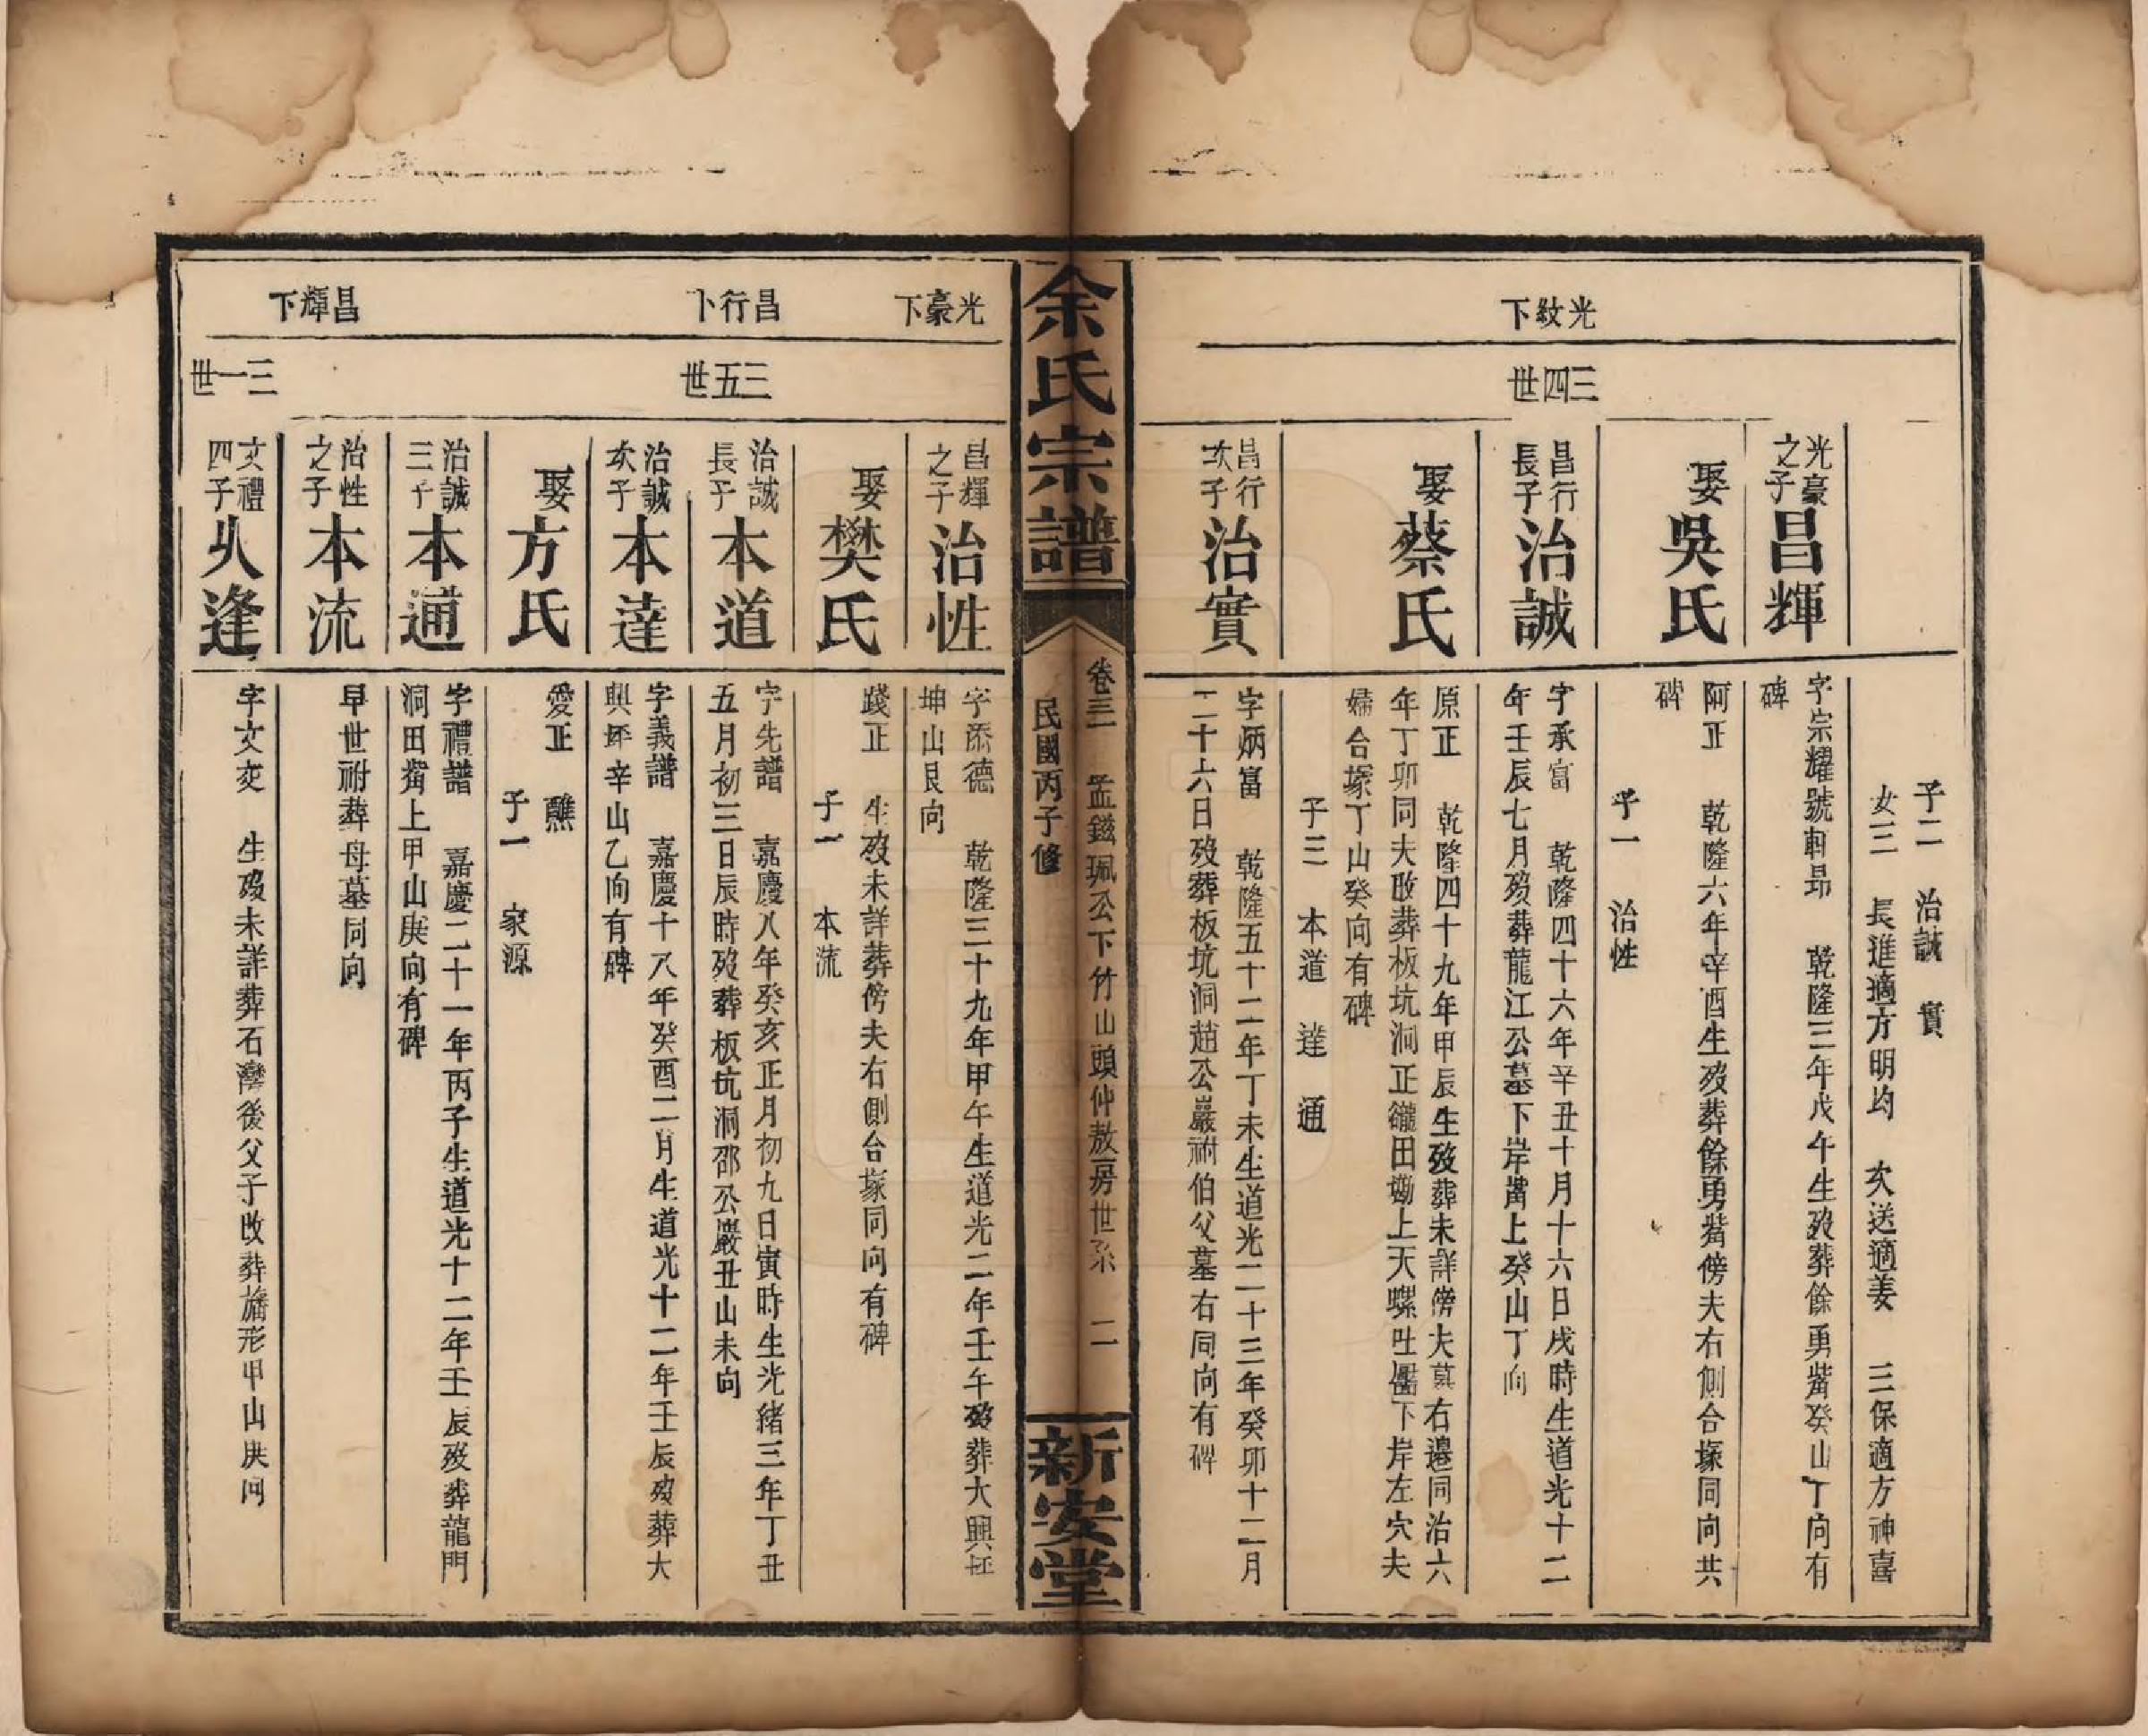 光紋下
三四世
子二 治誠 實
女三 長進適方明均 次送適姜 三保適方神喜
光豪之子 昌輝
字宗耀號軒昂 乾隆三年戊午生歿葬餘勇嘴癸山丁向有
碑
娶吳氏
阿正 乾隆六年辛酉生歿葬餘勇嘴傍夫右側合塚同向共
碑
子一 治性
昌行長子 治誠
字承富 乾隆四十六年辛丑十月十六日戌時生道光十二
年壬辰七月歿葬龍江公墓下岸嘴上癸山丁向
娶蔡氏
原正 乾隆四十九年甲辰生歿葬未詳傍夫墓右邉同治六
年丁卯同夫改葬板坑洞正龍田墈上天螺吐靨下岸左穴夫
婦合塚丁山癸向有碑
子三 本道 達 通
昌行次子 治實
字炳富 乾隆五十二年丁未生道光二十三年癸卯十二月
二十六日歿葬板坑洞趙公巖祔伯父墓右同向有碑
余氏宗譜
卷三 孟鎡珮公下竹山頭仲敖房世系 二
民國丙子修
新安堂
光豪下
昌行下
昌輝下
三五世
三一世
昌輝之子 治性
字添德 乾隆三十九年甲午生道光二年壬午歿葬大興坯
坤山艮向
娶樊氏
踐正 生歿未詳葬傍夫右側合塚同向有碑
子一 本流
治誠長子 本道
字先譜 嘉慶八年癸亥正月初九日寅時生光緒三年丁丑
五月初三日辰時歿葬板坑洞邵公巖丑山未向
治誠次子 本達
字義譜 嘉慶十八年癸酉二月生道光十二年壬辰歿葬大
興坯辛山乙向有碑
娶方氏
愛正 醮
子一 家源
治誠三子 本通
字禮譜 嘉慶二十一年丙子生道光十二年壬辰歿葬龍門
洞田嘴上甲山庚向有碑
治性之子 本流
早世祔葬母墓同向
文禮四子 從逢
字文奕 生歿未詳葬石灣後父子改葬旛形甲山庚向